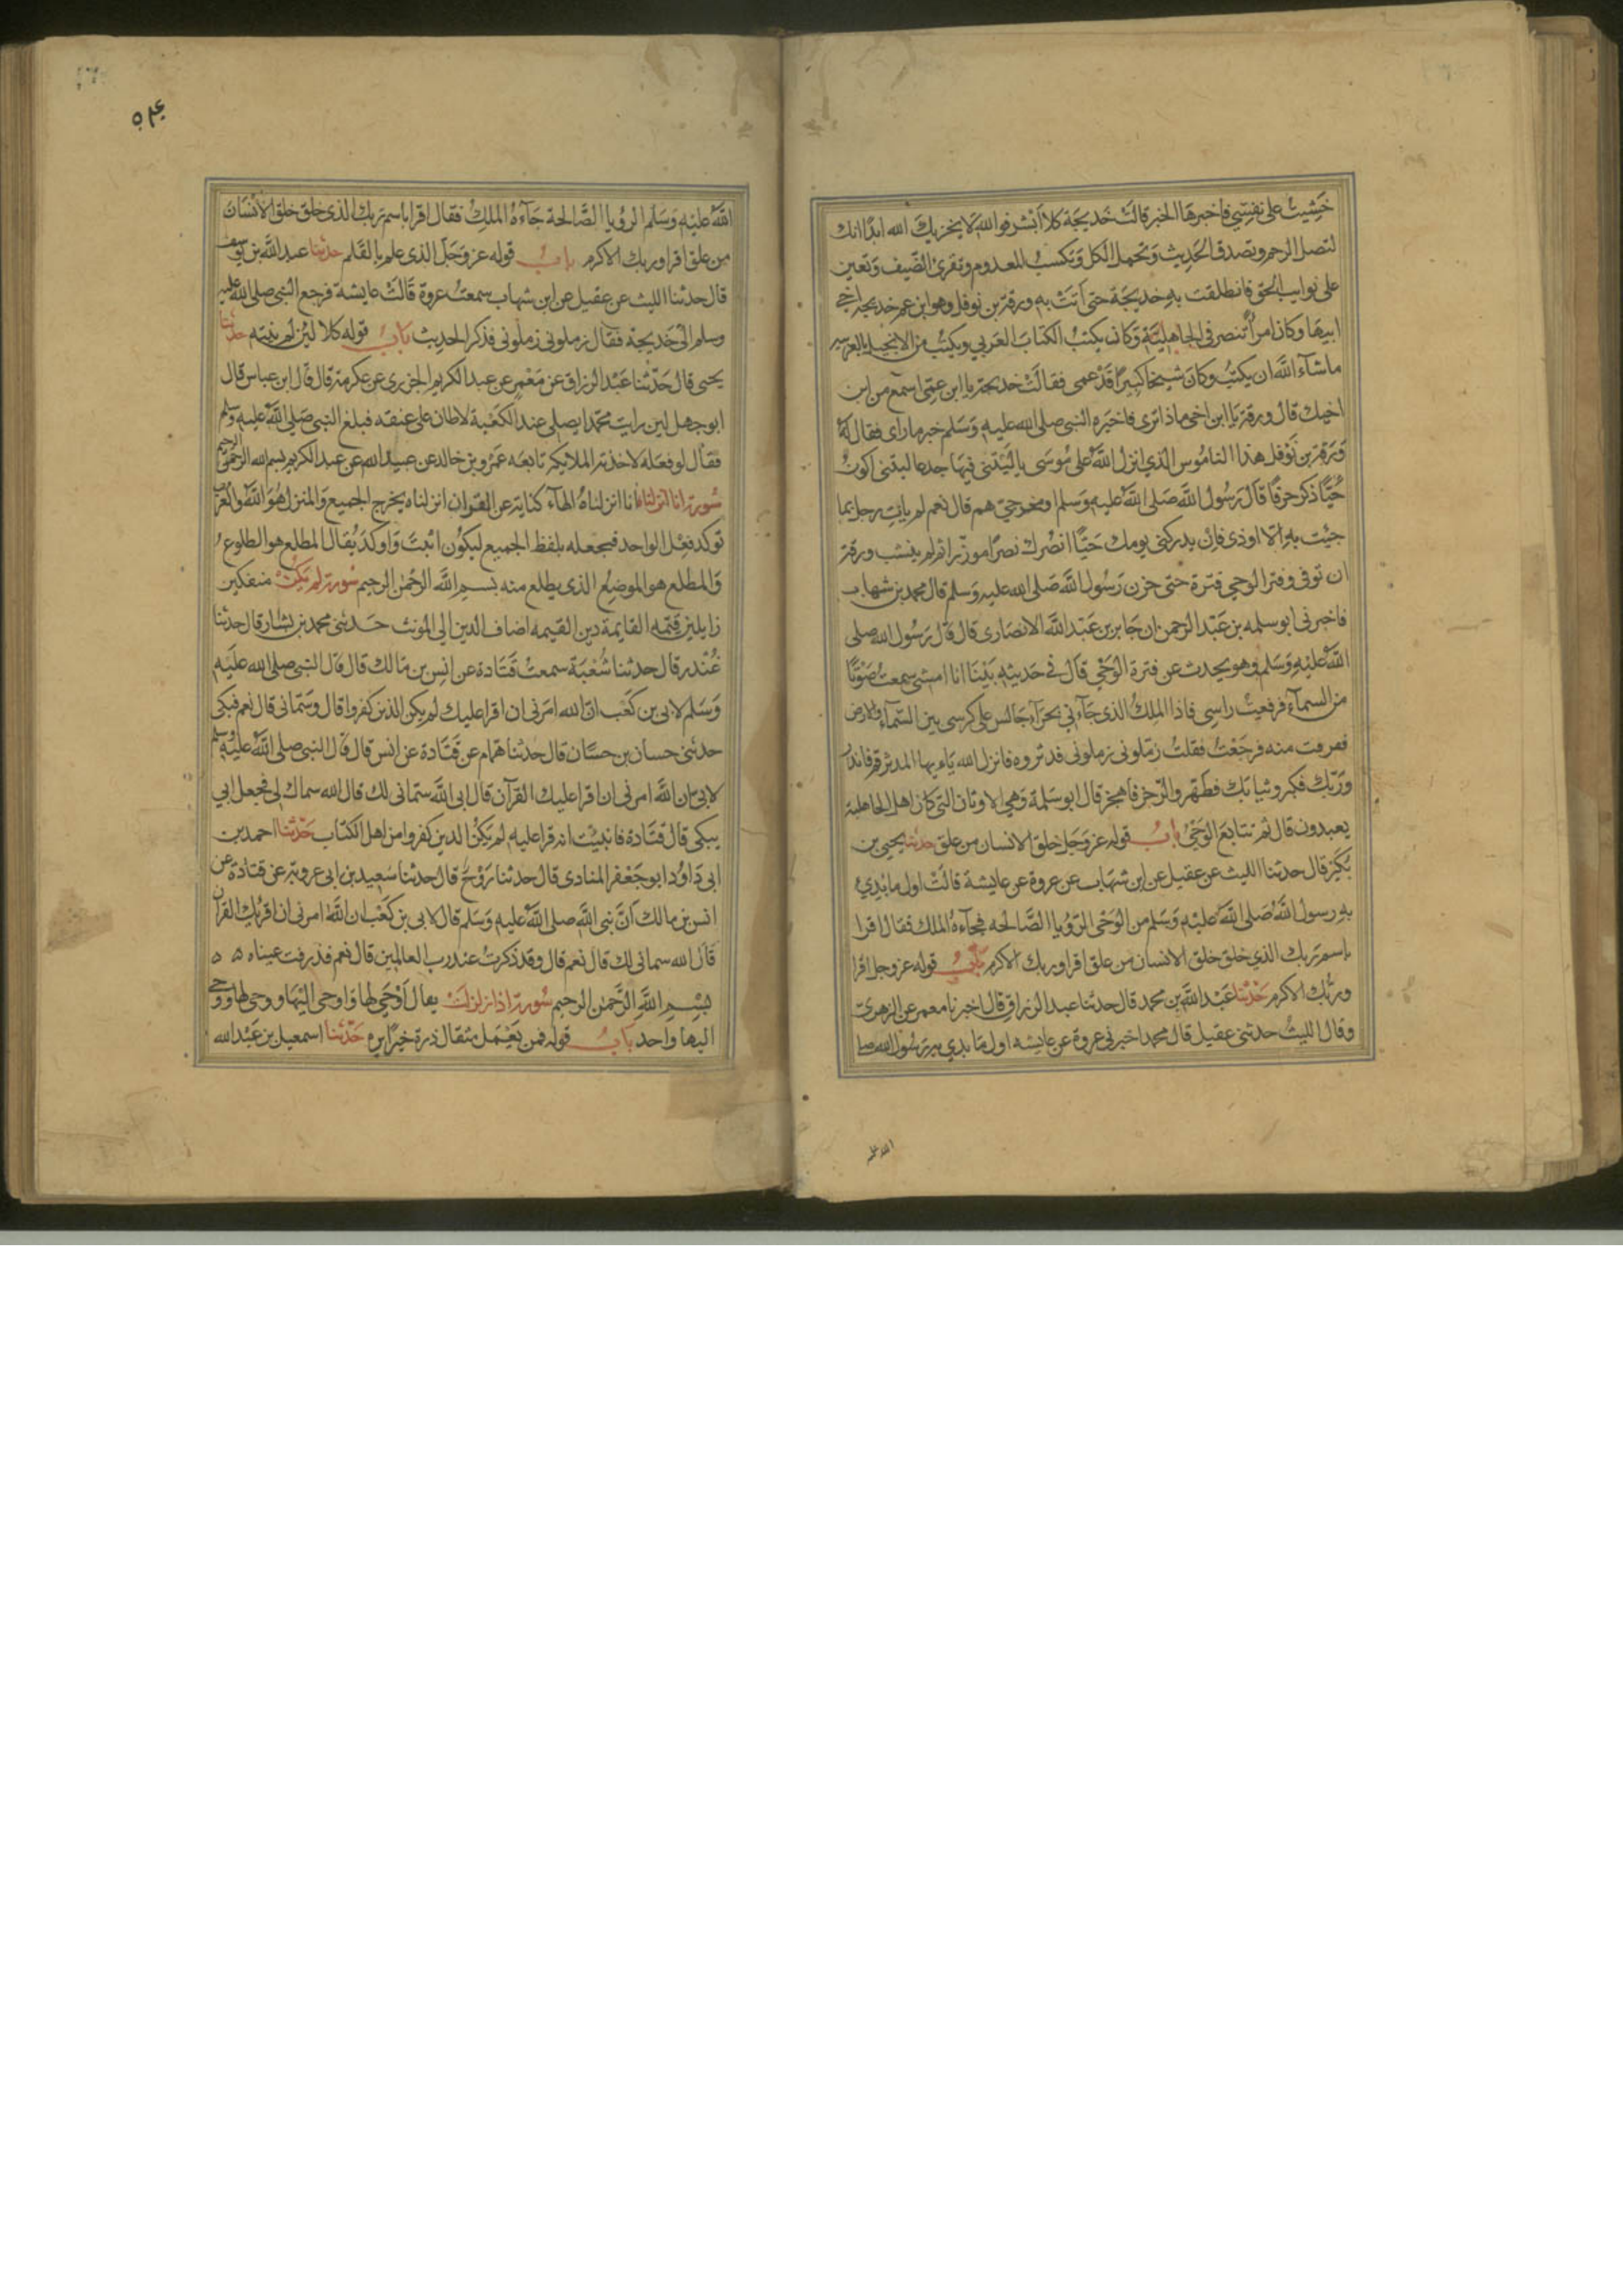 خَشِيتُ على نفسِي فاخبرهَا الخبر قالَتْ خَديجَة كلا اَبْشر فوالله لَا يخزيكَ الله ابدًا انك
لتصل الرحم وتصدق الحَدِيث وَتحمل الكلّ وَتكسبُ المعدوم وتقرىُ الضّيف وَتعين
على نوايب الحق فانطلقت بهِ خديجَة حتى اَتتْ بهِ ورقة بن نوفل وهو ابن عم خديجه اخي
ابيهَا وكان امرأً تنصر في الجاهليّة وَكان يكتبُ الكتابَ العَربي ويكتُب من الانجيل بالعربيه
ما شآء اللّه ان يكتبُ وكانَ شيخًا كبيرًا قَدْ عمى فقالَتْ خديجة يا ابن عمّي اسمع من ابن
اخيك قال ورقة يَا ابن اخي ماذا ترى فاخبَره النبى صلى الله عليهِ وَسَلم خبر ما راى فقال لهُ
وَرَقة بن نَوْفل هذا الناموُس الذي انزل اللّهُ على مُوسَى يا ليْتَني فيهَا جدعا ليتنى اكون
حَيًّا ذكر حرفًا قال رَسُول اللّه صَلى اللّه عليه وَسلم او مخرجيّ هم قال نعم لم ياتِ رجل بما
جئت بهِ الّا اوذى فاِن يدركنى يومك حَيًّا انصُرك نصرًا موزّرا ثم لم ينشب ورقة
ان توفى وفتر الوحي فترة حتى حزن رَسُول اللّه صَلى الله عليه وَسلم قال محمد بن شهاب
فاخبرنى ابو سلمه بن عَبْد الرحمن ان جَابر بن عَبْد اللّه الانصَارى قال قال رَسُول الله صلى
اللّه عليْهِ وَسَلم وهو يحدث عن فترة الوَحْي قال في حَديثهِ بيْنَا انا امشى سمعتُ صَوْتًا
من السمآء فرفعتْ راسِى فاذا الملكُ الذى جَآءني بحرَاء جَالس على كرسى بين السّمآء والارض
ففرقت منه فرجَعْتُ فقلتُ زمّلونى زملونى فدثروه فانزل الله يَاءيها المدثر قم فانذر
وَرَبّك فكبر وثيابَك فطهّر والرّجز فاهجز قال ابو سَلمة وَهي الاوثان التى كان اهل الجاهلية
يعبدون قال ثم تتابعَ الوَحْىُ بابُ قوله عز وَجَل خلق الانسان من علق حدثنا يحيى بن
بُكَيْر قال حدثنا الليث عن عقيل عن ابن شهَاب عن عروة عن عايشة قالتْ اول ما بُدِئ
بهِ رسول اللّه صَلى اللّه عليْهِ وَسَلم من الوَحْى الرّؤيا الصَّالحه فجآءهُ الملك فقال اقرا
باسم ربك الذي خلق خلق الانسان من علق اقرا وربك الاكرم بابُ قوله عز وجل اقرا
وربُّك الاكرم حَدّثنا عَبْد اللّه بن محمد قال حدثنا عبد الرزاق قال اخبرنا معمر عن الزهرى
وقال الليثُ حدثنى عقيل قال محمد اخبرني عروة عن عايشه اول مَا بدي به رسُول الله صلى
الله عليه
٥٨٤
اللّهُ عليْهِ وَسَلم الرؤيا الصَّالحة جَآءهُ الملكُ فقال اقرا باسم ربك الذى خلق خلق الانسَان
من علق اقرا وربك الاكرم بابُ قوله عز وَجَل الذى علم بالقَلم حدثنا عبد اللّه بن يوسف
قال حدثنا الليث عن عقيل عن ابن شهاب سمعتُ عروة قَالتْ عايشة فرجع النبى صلى اللّه عليه
وسلم الى خَديجة فقال زملونى زملونى فذكر الحديث بابُ قوله كلا لئن لم ينته حدثنا
يحيى قال حَدّثنا عَبْد الرزاق عن مَعْمر عن عبد الكريم الجزرى عن عكرمة قال قال ابن عباس قال
ابو جهل لين رايت محمّدا يصلى عند الكعْبة لاطان على عنقه فبلغ النبى صَلى اللّه عليهِ وسلم
فقال لو فعله لاخذته الملائيكة تابعَه عَمْرو بن خالد عن عبيد الله عن عبد الكريم بسم الله الرحمن الرحيم
سُورة انا انزلناه انا انزلناهُ الهآء كناية عن القران انزلناه يخرج الجميع وَالمنزل هُوَ اللّه والعرَب
توكد فعْل الواحد فيجعله بلفظ الجميع ليكوُن اثبتَ وَاوكدَ يُقال المطلع هو الطلوع
وَالمطلع هو الموضِع الذى يطلع منه بسم اللّه الرحمن الرحيم سُورة لم يَكنْ منفكين
زايلين قيّمه القايمة دين القيمه اضاف الدين الي المونث حَدثنى محمد بن بشار قال حدثنا
غُنْدر قال حدثنا شُعْبَة سمعتُ قَتَادة عن انس بن مَالك قال قال النبى صلى الله عليَه
وَسَلم لابى بن كَعْب انّ الله امَرنى ان اقرا عليك لم يكن الذين كفروا قال وَسَمّانى قال نعم فبكى
حدثنى حسان بن حسَّان قال حدثنا همّام عن قَتَادة عن انس قال قال النبى صلى اللّه عليْه وسلم
لابىّ ان اللّه امرنى ان اقرا عليك القرآن قال ابى اللّه سَمّانى لك قال الله سماك لى فجعل ابي
يبكى قال قتَادة فانبئِت انه قرا عليهِ لم يَكن الذين كفروا من اهل الكتاب حَدّثنا احمد بن
ابى دَاوُد ابو جَعْفر المنادى قال حدثنا رَوْحُ قال حدثنا سَعيد بن ابى عروبة عن قتادة عن
انس بن مالك انَّ نبى اللّه صلى اللّه عليهِ وَسَلم قال لابى بن كعْب ان اللّه امرنى ان اقرئك القرآن
قال الله سمانى لك قال نعم قال وقد ذكرتُ عند رب العالمين قال نعم فذرفت عيناه ٥ ٥
بسم اللّه الرَّحمٰن الرحيم سُورة اذا زلزلتْ يقال اَوْحَى لها وَاوحى اليْهَا ووحى لها ووحى
اليها واحد بابُ قوله فمن يَعْمَل مثقال ذرة خيْرًا يره حَدّثنا اسمعيل بن عَبْد الله